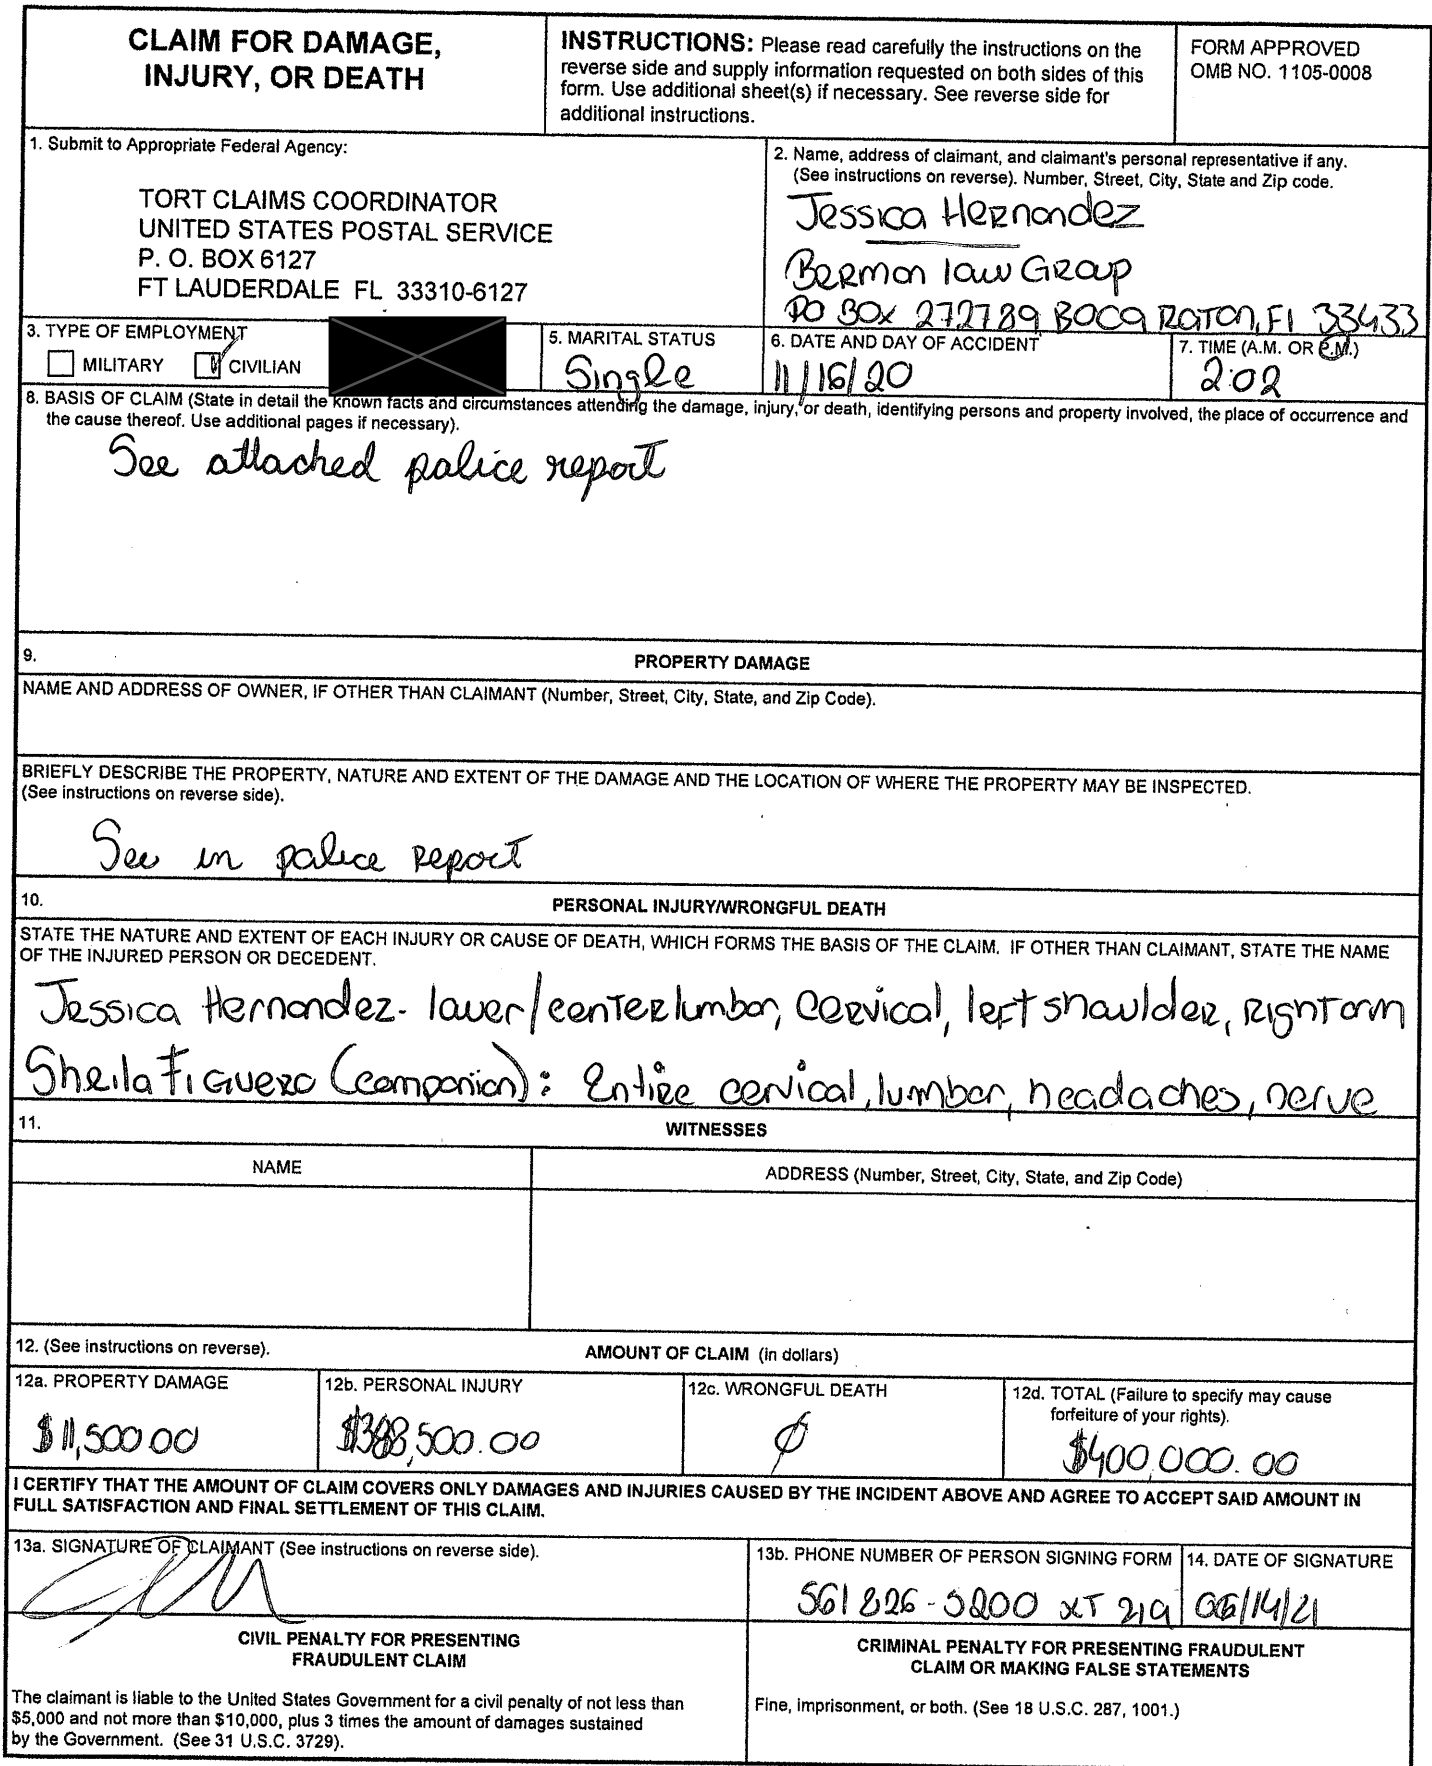 CLAIM FOR DAMAGE,
INJURY, OR DEATH
INSTRUCTIONS: Please read carefully the instructions on the
reverse side and supply information requested on both sides of this
form. Use additional sheet(s) if necessary. See reverse side for
additional instructions.
FORM APPROVED
OMB NO. 1105-0008
1. Submit to Appropriate Federal Agency:
TORT CLAIMS COORDINATOR
UNITED STATES POSTAL SERVICE
P. O. BOX 6127
FT LAUDERDALE FL 33310-6127
2. Name, address of claimant, and claimant's personal representative if any.
(See instructions on reverse). Number, Street, City, State and Zip code.
Jessica Hernandez
Berman law Group
PO BOX 272789 BOCA RATON, Fl 33433
3. TYPE OF EMPLOYMENT
MILITARY CIVILIAN
5. MARITAL STATUS
Single
6. DATE AND DAY OF ACCIDENT
11/16/20
7. TIME (A.M. OR P.M.)
2:02
8. BASIS OF CLAIM (State in detail the known facts and circumstances attending the damage, injury, or death, identifying persons and property involved, the place of occurrence and
the cause thereof. Use additional pages if necessary).
See attached police report
9. PROPERTY DAMAGE
NAME AND ADDRESS OF OWNER, IF OTHER THAN CLAIMANT (Number, Street, City, State, and Zip Code).
BRIEFLY DESCRIBE THE PROPERTY, NATURE AND EXTENT OF THE DAMAGE AND THE LOCATION OF WHERE THE PROPERTY MAY BE INSPECTED.
(See instructions on reverse side).
See in police report
10. PERSONAL INJURY/WRONGFUL DEATH
STATE THE NATURE AND EXTENT OF EACH INJURY OR CAUSE OF DEATH, WHICH FORMS THE BASIS OF THE CLAIM. IF OTHER THAN CLAIMANT, STATE THE NAME
OF THE INJURED PERSON OR DECEDENT.
Jessica Hernandez- lower/center lumbar, cervical, left shoulder, right arm
Sheila Figuero (companion): Entire cervical, lumbar, headaches, nerve
11. WITNESSES
NAME
ADDRESS (Number, Street, City, State, and Zip Code)
12. (See instructions on reverse). AMOUNT OF CLAIM (in dollars)
12a. PROPERTY DAMAGE
$11,500.00
12b. PERSONAL INJURY
$388,500.00
12c. WRONGFUL DEATH
Ø
12d. TOTAL (Failure to specify may cause
forfeiture of your rights).
$400,000.00
I CERTIFY THAT THE AMOUNT OF CLAIM COVERS ONLY DAMAGES AND INJURIES CAUSED BY THE INCIDENT ABOVE AND AGREE TO ACCEPT SAID AMOUNT IN
FULL SATISFACTION AND FINAL SETTLEMENT OF THIS CLAIM.
13a. SIGNATURE OF CLAIMANT (See instructions on reverse side).
13b. PHONE NUMBER OF PERSON SIGNING FORM
561 826-5200 XT 219
14. DATE OF SIGNATURE
06/14/21
CIVIL PENALTY FOR PRESENTING
FRAUDULENT CLAIM
The claimant is liable to the United States Government for a civil penalty of not less than
$5,000 and not more than $10,000, plus 3 times the amount of damages sustained
by the Government. (See 31 U.S.C. 3729).
CRIMINAL PENALTY FOR PRESENTING FRAUDULENT
CLAIM OR MAKING FALSE STATEMENTS
Fine, imprisonment, or both. (See 18 U.S.C. 287, 1001.)